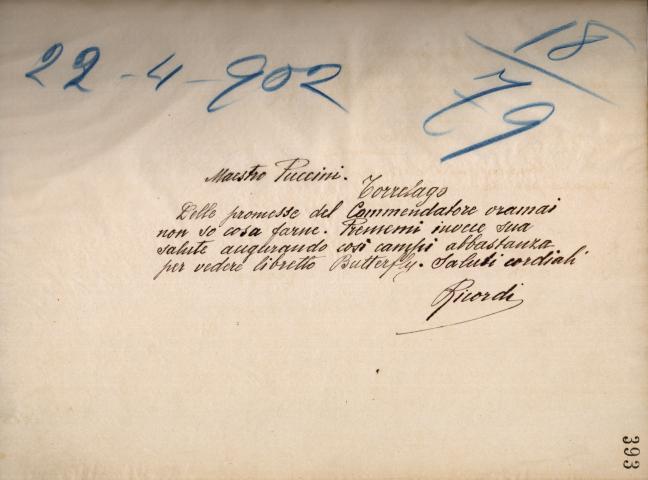 22-4-902
18/79
Maestro Puccini.
Torrelago
Delle promesse del Commendatore oramai
non so cosa farne. Prememi invece sua
salute augurando così campi abbastanza
per vedere libretto Butterfly. Saluti cordiali
Ricordi
393